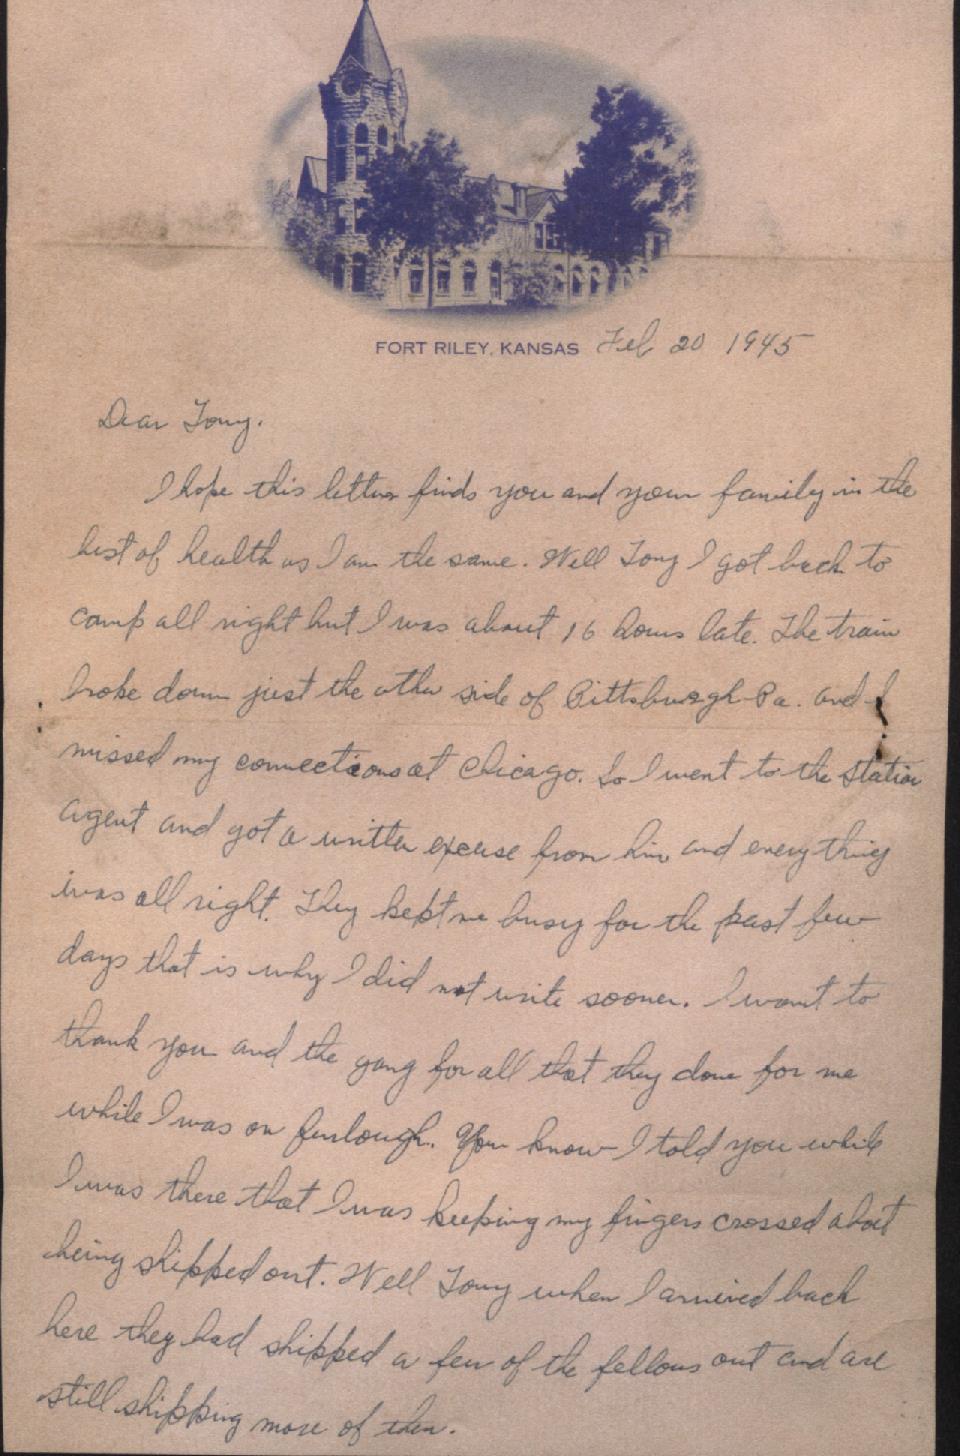 FORT RILEY, KANSAS Feb 20 1945
Dear Tony.
I hope this letter finds you and your family in the
best of health as I am the same. Well Tony I got back to
camp all right but I was about 16 hours late. The train
broke down just the other side of Pittsburgh Pa. and I
missed my connections at Chicago. So I went to the station
agent and got a written excuse from him and everything
was all right. They kept me busy for the past few
days that is why I did not write sooner. I want to
thank you and the gang for all that they done for me
while I was on furlough. You know I told you while
I was there that I was keeping my fingers crossed about
being shipped out. Well Tony when I arrived back
here they had shipped a few of the fellows out and are
still shipping more of them.